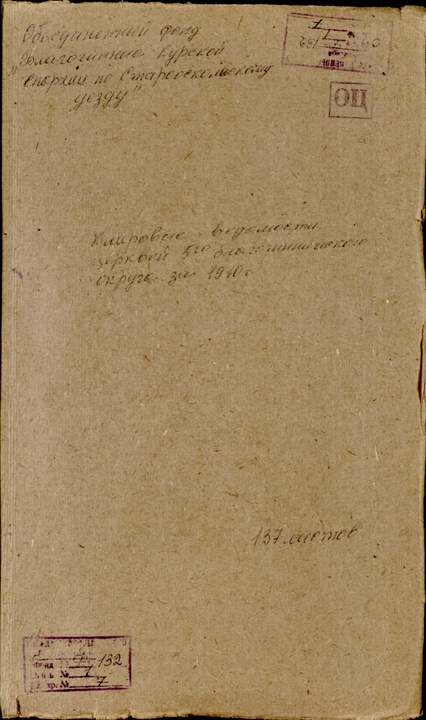 Объединенный фонд
"Благочинные Курской
епархии по Старооскольскому
уезду"
132
ОЦ
Клировые ведомости
церквей 5го благочиннического
округа за 1910 г
137 листов
132
№ 1
№ 7